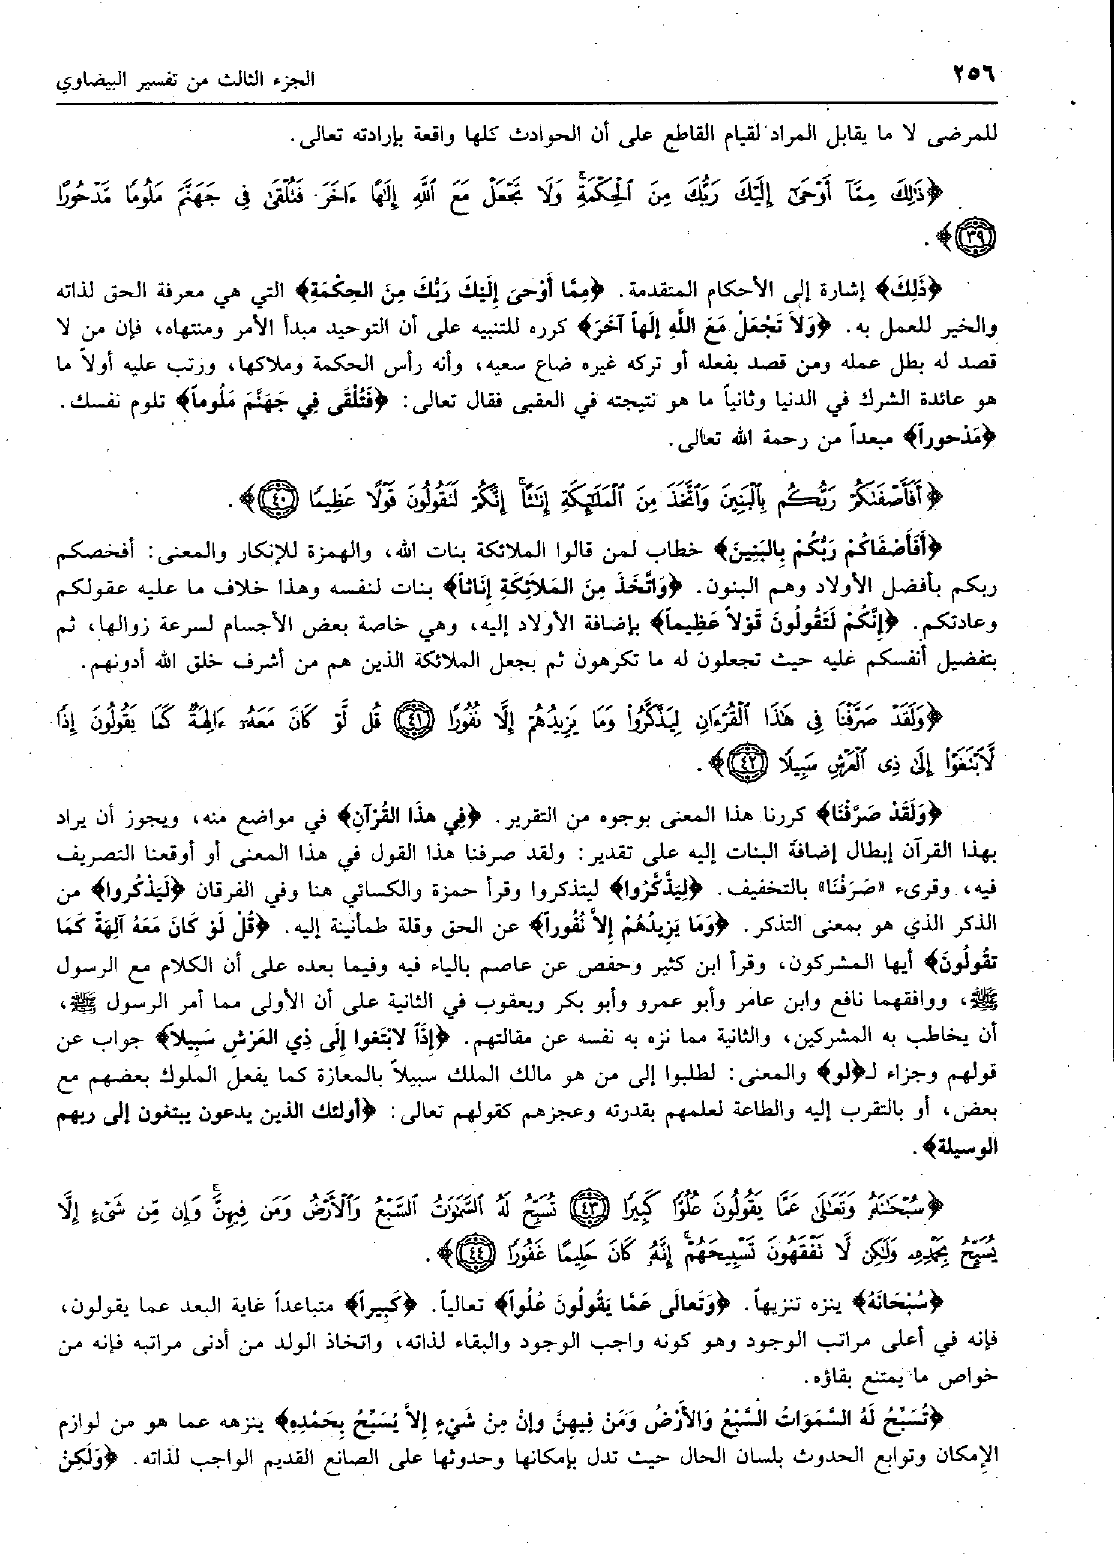 ٢٥٦
الجزء الثالث من تفسير البيضاوي
للمرضى لا ما يقابل المراد لقيام القاطع على أن الحوادث كلها واقعة بإرادته تعالى.
﴿ذَٰلِكَ مِمَّآ أَوْحَىٰٓ إِلَيْكَ رَبُّكَ مِنَ ٱلْحِكْمَةِ ۗ وَلَا تَجْعَلْ مَعَ ٱللَّهِ إِلَٰهًا ءَاخَرَ فَتُلْقَىٰ فِى جَهَنَّمَ مَلُومًا مَّدْحُورًا
(٣٩)﴾.
﴿ذَلِكَ﴾ إشارة إلى الأحكام المتقدمة. ﴿مِمَّا أَوْحَىٰ إِلَيْكَ رَبُّكَ مِنَ الحِكْمَةِ﴾ التي هي معرفة الحق لذاته
والخير للعمل به. ﴿وَلاَ تَجْعَلْ مَعَ اللَّهِ إِلَهاً آخَرَ﴾ كرره للتنبيه على أن التوحيد مبدأ الأمر ومنتهاه، فإن من لا
قصد له بطل عمله ومن قصد بفعله أو تركه غيره ضاع سعيه، وأنه رأس الحكمة وملاكها، ورتب عليه أولاً ما
هو عائدة الشرك في الدنيا وثانياً ما هو نتيجته في العقبى فقال تعالى: ﴿فَتُلْقَى فِي جَهَنَّمَ مَلُوماً﴾ تلوم نفسك.
﴿مَدْحوراً﴾ مبعداً من رحمة الله تعالى.
﴿أَفَأَصْفَىٰكُمْ رَبُّكُم بِٱلْبَنِينَ وَٱتَّخَذَ مِنَ ٱلْمَلَٰٓئِكَةِ إِنَٰثًا ۚ إِنَّكُمْ لَتَقُولُونَ قَوْلًا عَظِيمًا (٤٠)﴾.
﴿أَفَأَصْفَاكُمْ رَبُّكُمْ بِالبَنِينَ﴾ خطاب لمن قالوا الملائكة بنات الله، والهمزة للإنكار والمعنى: أفخصكم
ربكم بأفضل الأولاد وهم البنون. ﴿وَاتَّخَذَ مِنَ المَلاَئِكَةِ إِنَاثاً﴾ بنات لنفسه وهذا خلاف ما عليه عقولكم
وعادتكم. ﴿إِنَّكُمْ لَتَقُولُونَ قَوْلاً عَظِيماً﴾ بإضافة الأولاد إليه، وهي خاصة بعض الأجسام لسرعة زوالها، ثم
بتفضيل أنفسكم عليه حيث تجعلون له ما تكرهون ثم بجعل الملائكة الذين هم من أشرف خلق الله أدونهم.
﴿وَلَقَدْ صَرَّفْنَا فِى هَٰذَا ٱلْقُرْءَانِ لِيَذَّكَّرُوا۟ وَمَا يَزِيدُهُمْ إِلَّا نُفُورًا (٤١) قُل لَّوْ كَانَ مَعَهُۥٓ ءَالِهَةٌ كَمَا يَقُولُونَ إِذًا
لَّٱبْتَغَوْا۟ إِلَىٰ ذِى ٱلْعَرْشِ سَبِيلًا (٤٢)﴾.
﴿وَلَقَدْ صَرَّفْنَا﴾ كررنا هذا المعنى بوجوه من التقرير. ﴿فِي هذَا القُرْآنِ﴾ في مواضع منه، ويجوز أن يراد
بهذا القرآن إبطال إضافة البنات إليه على تقدير: ولقد صرفنا هذا القول في هذا المعنى أو أوقعنا التصريف
فيه، وقرىء «صَرَفْنَا» بالتخفيف. ﴿لِيَذَّكَّرُوا﴾ ليتذكروا وقرأ حمزة والكسائي هنا وفي الفرقان ﴿لِيَذْكُروا﴾ من
الذكر الذي هو بمعنى التذكر. ﴿وَمَا يَزِيدُهُمْ إِلاَّ نُفُوراً﴾ عن الحق وقلة طمأنينة إليه. ﴿قُلْ لَوْ كَانَ مَعَهُ آلِهَةٌ كَمَا
تَقُولُونَ﴾ أيها المشركون، وقرأ ابن كثير وحفص عن عاصم بالياء فيه وفيما بعده على أن الكلام مع الرسول
ﷺ، ووافقهما نافع وابن عامر وأبو عمرو وأبو بكر ويعقوب في الثانية على أن الأولى مما أمر الرسول ﷺ،
أن يخاطب به المشركين، والثانية مما نزه به نفسه عن مقالتهم. ﴿إِذَاً لابْتَغوا إِلَى ذِي العَرْشِ سَبِيلاً﴾ جواب عن
قولهم وجزاء لـ﴿لو﴾ والمعنى: لطلبوا إلى من هو مالك الملك سبيلاً بالمعازة كما يفعل الملوك بعضهم مع
بعض، أو بالتقرب إليه والطاعة لعلمهم بقدرته وعجزهم كقولهم تعالى: ﴿أولئك الذين يدعون يبتغون إلى ربهم
الوسيلة﴾.
﴿سُبْحَٰنَهُۥ وَتَعَٰلَىٰ عَمَّا يَقُولُونَ عُلُوًّا كَبِيرًا (٤٣) تُسَبِّحُ لَهُ ٱلسَّمَٰوَٰتُ ٱلسَّبْعُ وَٱلْأَرْضُ وَمَن فِيهِنَّ ۚ وَإِن مِّن شَىْءٍ إِلَّا
يُسَبِّحُ بِحَمْدِهِۦ وَلَٰكِن لَّا تَفْقَهُونَ تَسْبِيحَهُمْ ۗ إِنَّهُۥ كَانَ حَلِيمًا غَفُورًا (٤٤)﴾.
﴿سُبْحَانَهُ﴾ ينزه تنزيهاً. ﴿وَتَعالَى عَمَّا يَقُولُونَ عُلُواً﴾ تعالياً. ﴿كَبِيراً﴾ متباعداً غاية البعد عما يقولون،
فإنه في أعلى مراتب الوجود وهو كونه واجب الوجود والبقاء لذاته، واتخاذ الولد من أدنى مراتبه فإنه من
خواص ما يمتنع بقاؤه.
﴿تُسَبِّحُ لَهُ السَّمَوَاتُ السَّبْعُ وَالأَرْضُ وَمَنْ فِيهِنَّ وإِنْ مِنْ شَيْءٍ إِلاَّ يُسَبِّحُ بِحَمْدِهِ﴾ ينزهه عما هو من لوازم
الإمكان وتوابع الحدوث بلسان الحال حيث تدل بإمكانها وحدوثها على الصانع القديم الواجب لذاته. ﴿وَلَكِنْ